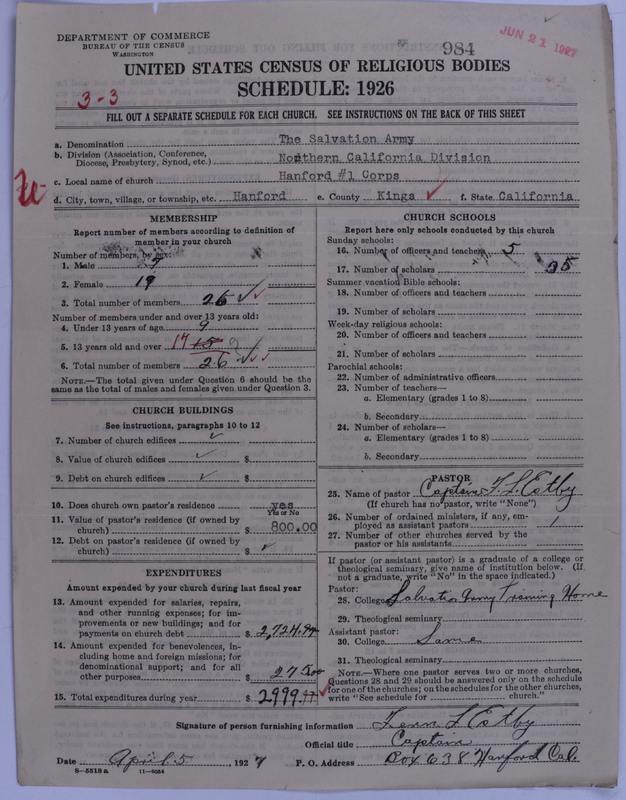 DEPARTMENT OF COMMERCE
BUREAU OF THE CENSUS
WASHINGTON
984
JUN 21 1927
UNITED STATES CENSUS OF RELIGIOUS BODIES
SCHEDULE: 1926
3-3
FILL OUT A SEPARATE SCHEDULE FOR EACH CHURCH. SEE INSTRUCTIONS ON THE BACK OF THIS SHEET
a. Denomination The Salvation Army
b. Division (Association, Conference, Diocese, Presbytery, Synod, etc.) Northern California Division
c. Local name of church Hanford #1 Corps
d. City, town, village, or township, etc. Hanford e. County Kings ✓ f. State California
MEMBERSHIP
Report number of members according to definition of
member in your church
Number of members, by sex:
1. Male 7
2. Female 19
3. Total number of members 26 ✓✓
Number of members under and over 13 years old:
4. Under 13 years of age 9
5. 13 years old and over 17 15
6. Total number of members 26 ✓✓
NOTE.—The total given under Question 6 should be
same as the total of males and females given under Question 3.
CHURCH BUILDINGS
See instructions, paragraphs 10 to 12
7. Number of church edifices ✓
8. Value of church edifices ✓ $
9. Debt on church edifices ✓ $
10. Does church own pastor's residence yes
Yes or No
11. Value of pastor's residence (if owned by
church) $ 800.00
12. Debt on pastor's residence (if owned by
church) $ ✓
EXPENDITURES
Amount expended by your church during last fiscal year
13. Amount expended for salaries, repairs,
and other running expenses; for im-
provements or new buildings; and for
payments on church debt $ 2,724.97
14. Amount expended for benevolences, in-
cluding home and foreign missions; for
denominational support; and for all
other purposes 275.00
15. Total expenditures during year $ 2999.97 ✓
CHURCH SCHOOLS
Report here only schools conducted by this church
Sunday schools:
16. Number of officers and teachers 5
17. Number of scholars 35
Summer vacation Bible schools:
18. Number of officers and teachers
19. Number of scholars
Week-day religious schools:
20. Number of officers and teachers
21. Number of scholars
Parochial schools:
22. Number of administrative officers
23. Number of teachers—
a. Elementary (grades 1 to 8)
b. Secondary
24. Number of scholars—
a. Elementary (grades 1 to 8)
b. Secondary
PASTOR
25. Name of pastor Captain F. L. Estby
(If church has no pastor, write "None")
26. Number of ordained ministers, if any, em-
ployed as assistant pastors 1
27. Number of other churches served by the
pastor or his assistants
If pastor (or assistant pastor) is a graduate of a college or
theological seminary, give name of institution below. (If
not a graduate, write "No" in the space indicated.)
Pastor:
28. College Salvation Army Training Home
29. Theological seminary
Assistant pastor:
30. College Same
31. Theological seminary
NOTE.—Where one pastor serves two or more churches,
Questions 28 and 29 should be answered only on the schedule
for one of the churches; on the schedules for the other churches,
write "See schedule for church."
Signature of person furnishing information Fenn L Estby
Official title Captain
Date April 5, 1927 P. O. Address Box 638 Hanford Cal.
8—5518a 11—9054